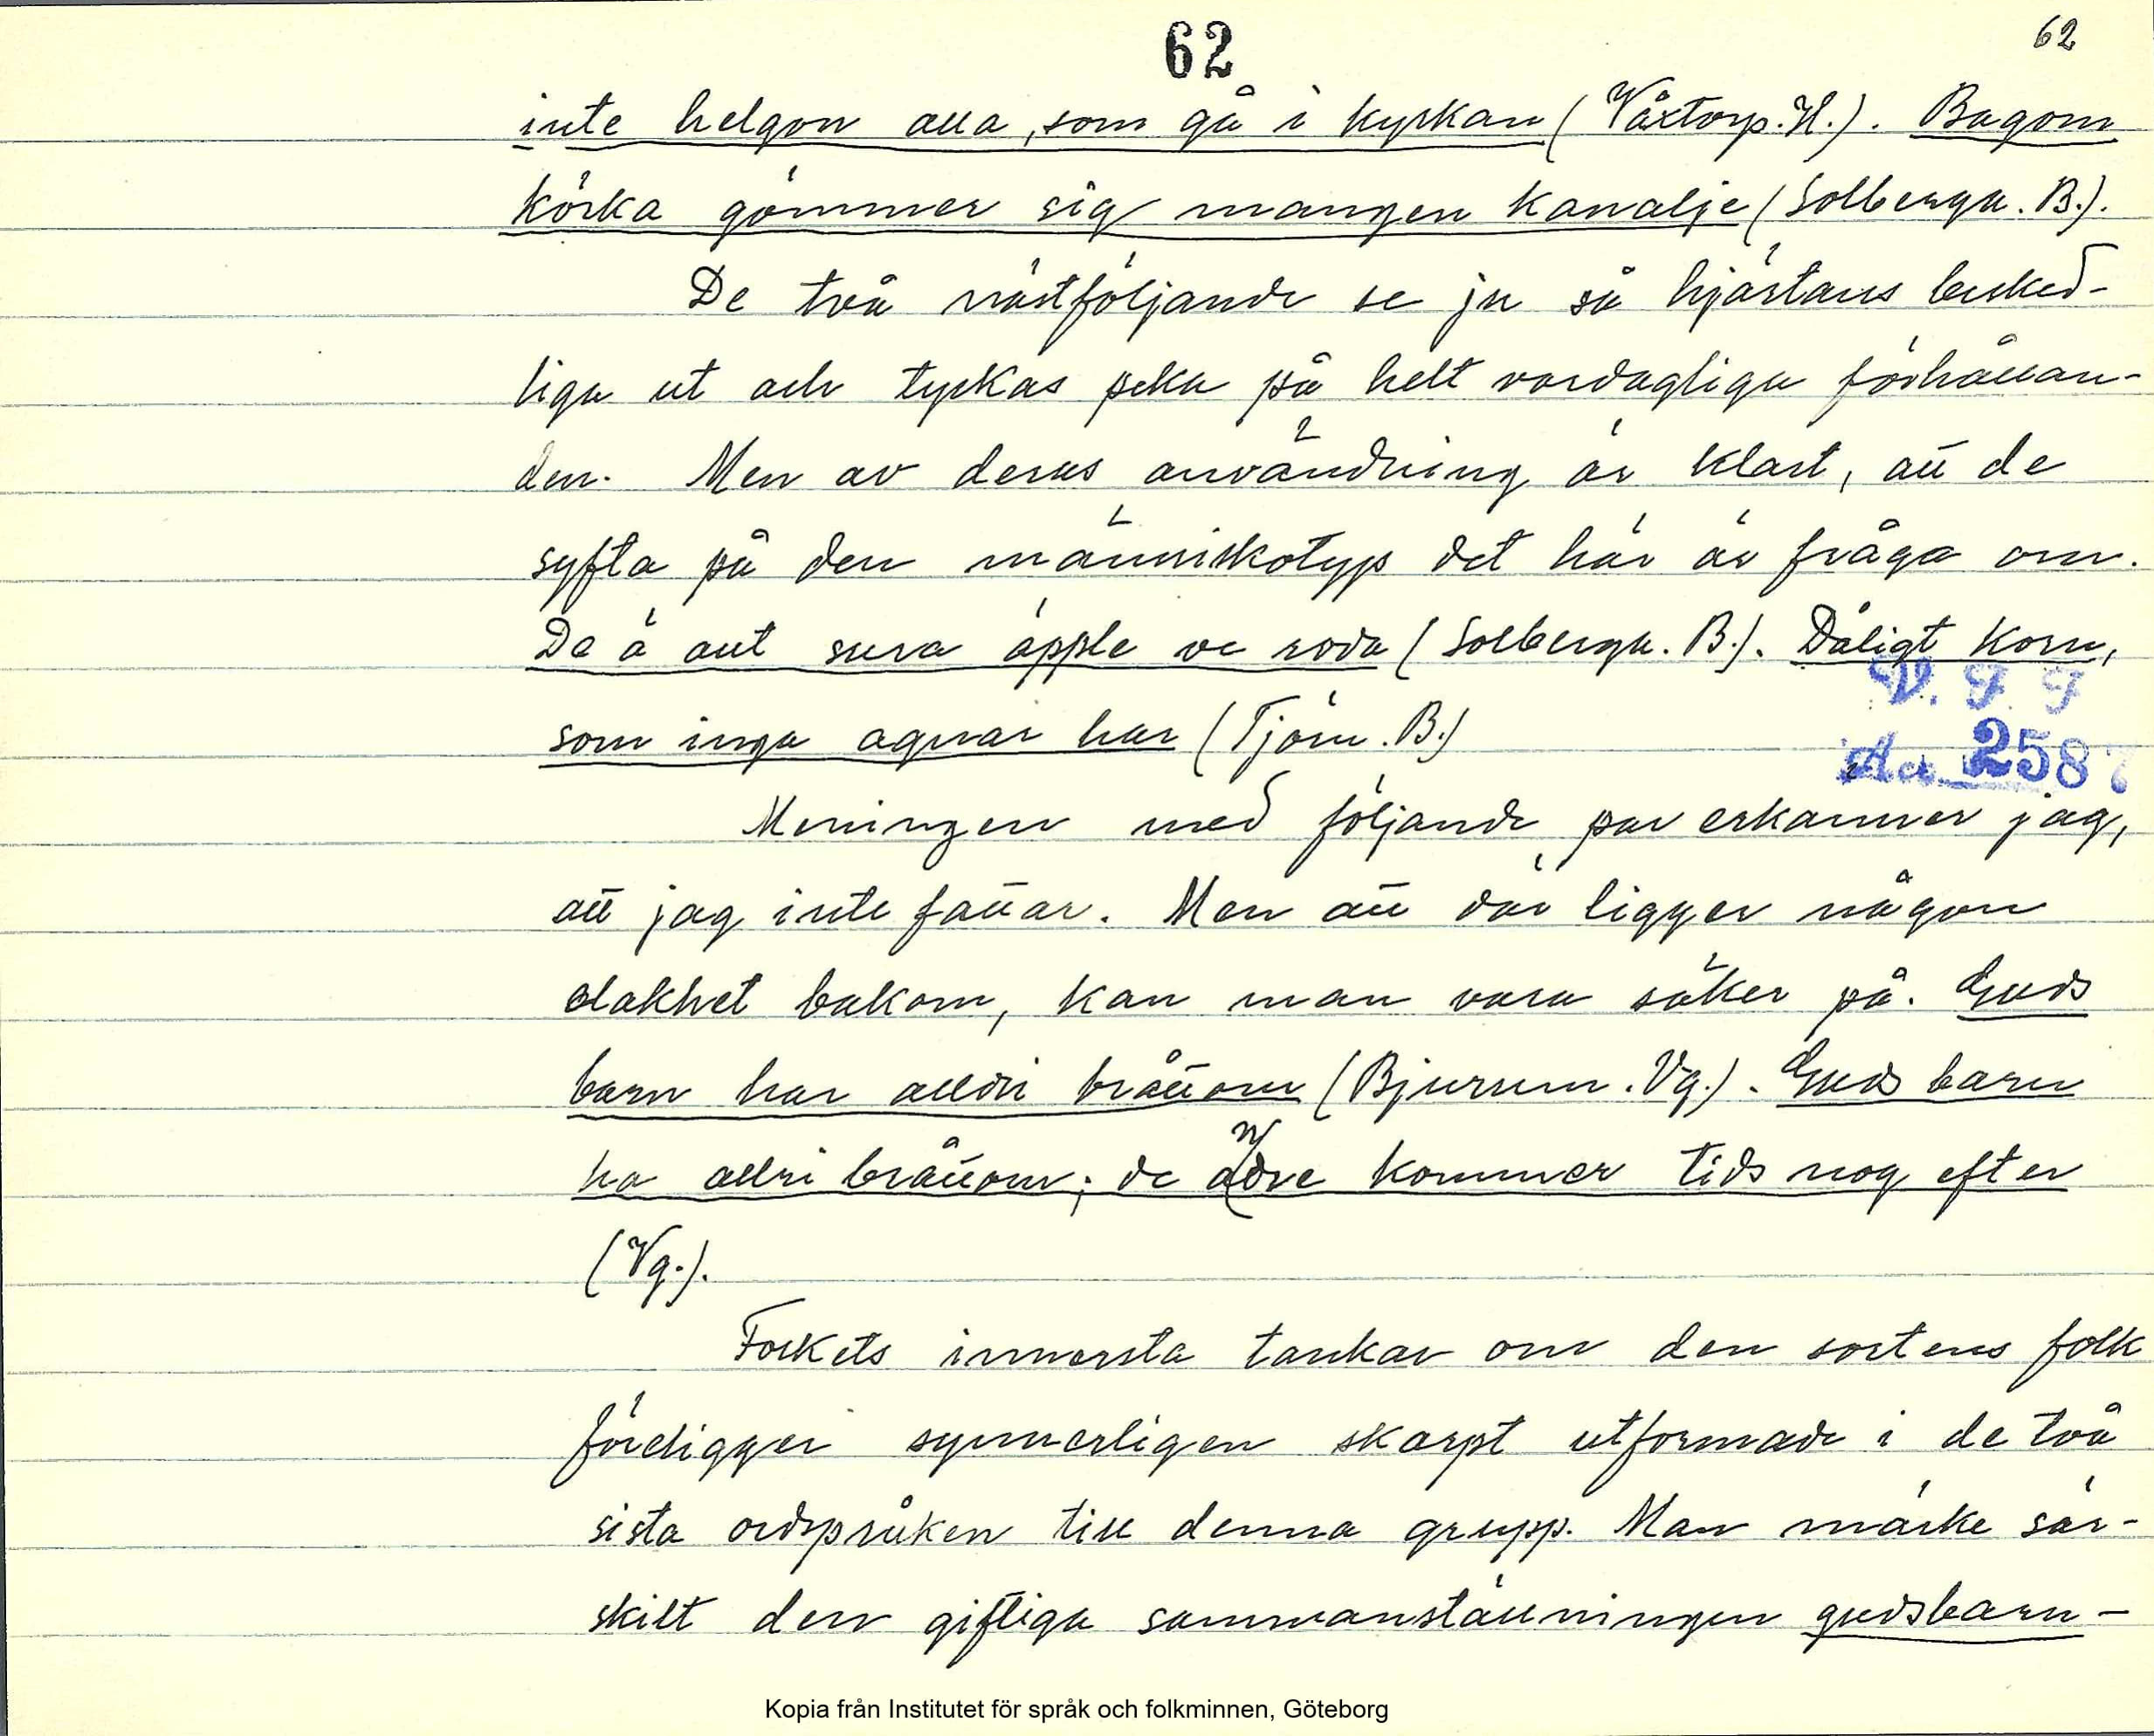 62
62
inte helgon alla, som gå i kyrkan (Våxtorp. H.). Bagom
körka gömmer sig mangen kanalje (Solberga. B.).
De två nästföljande se ju så hjärtans besked-
liga ut och tyckas peka på helt vardagliga förhållan-
den. Men av deras användning är klart, att de
syfta på den människotyp det här är fråga om.
De ä ant sura äpple ve roda (Solberga. B.). Dåligt korn,
som inga agnar har (Tjörn. B.)
V. F. F
Acc. 2587
Meningen med följande par erkänner jag,
att jag inte fattar. Men att där ligger någon
elakhet bakom, kan man vara säker på. Guds
barn har alldri bråttom (Bjurum. Vg.). Guds barn
ha allri bråttom; de andre kommer tids nog efter
(Vg.).
Folkets innersta tankar om den sortens folk
föreligger synnerligen skarpt utformade i de två
sista ordspråken till denna grupp. Man märke sär-
skilt den giftiga sammanställningen gudsbarn-
Kopia från Institutet för språk och folkminnen, Göteborg